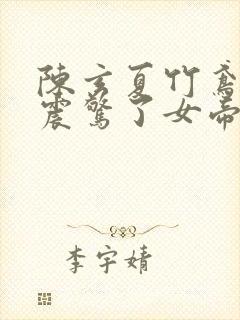 陳玄夏竹鳶
震驚了女帝
李宇婧